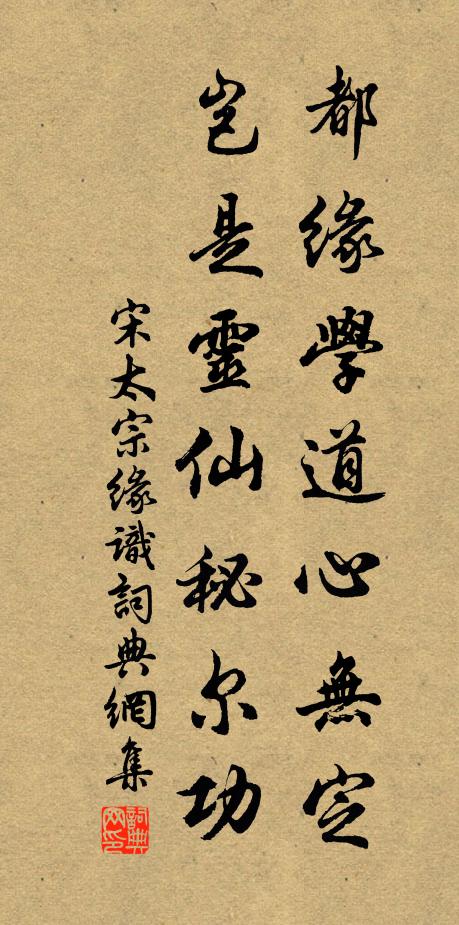 都緣學道心無定
豈是靈仙秘尔功
宋太宗緣識詞典網集
詞典网印